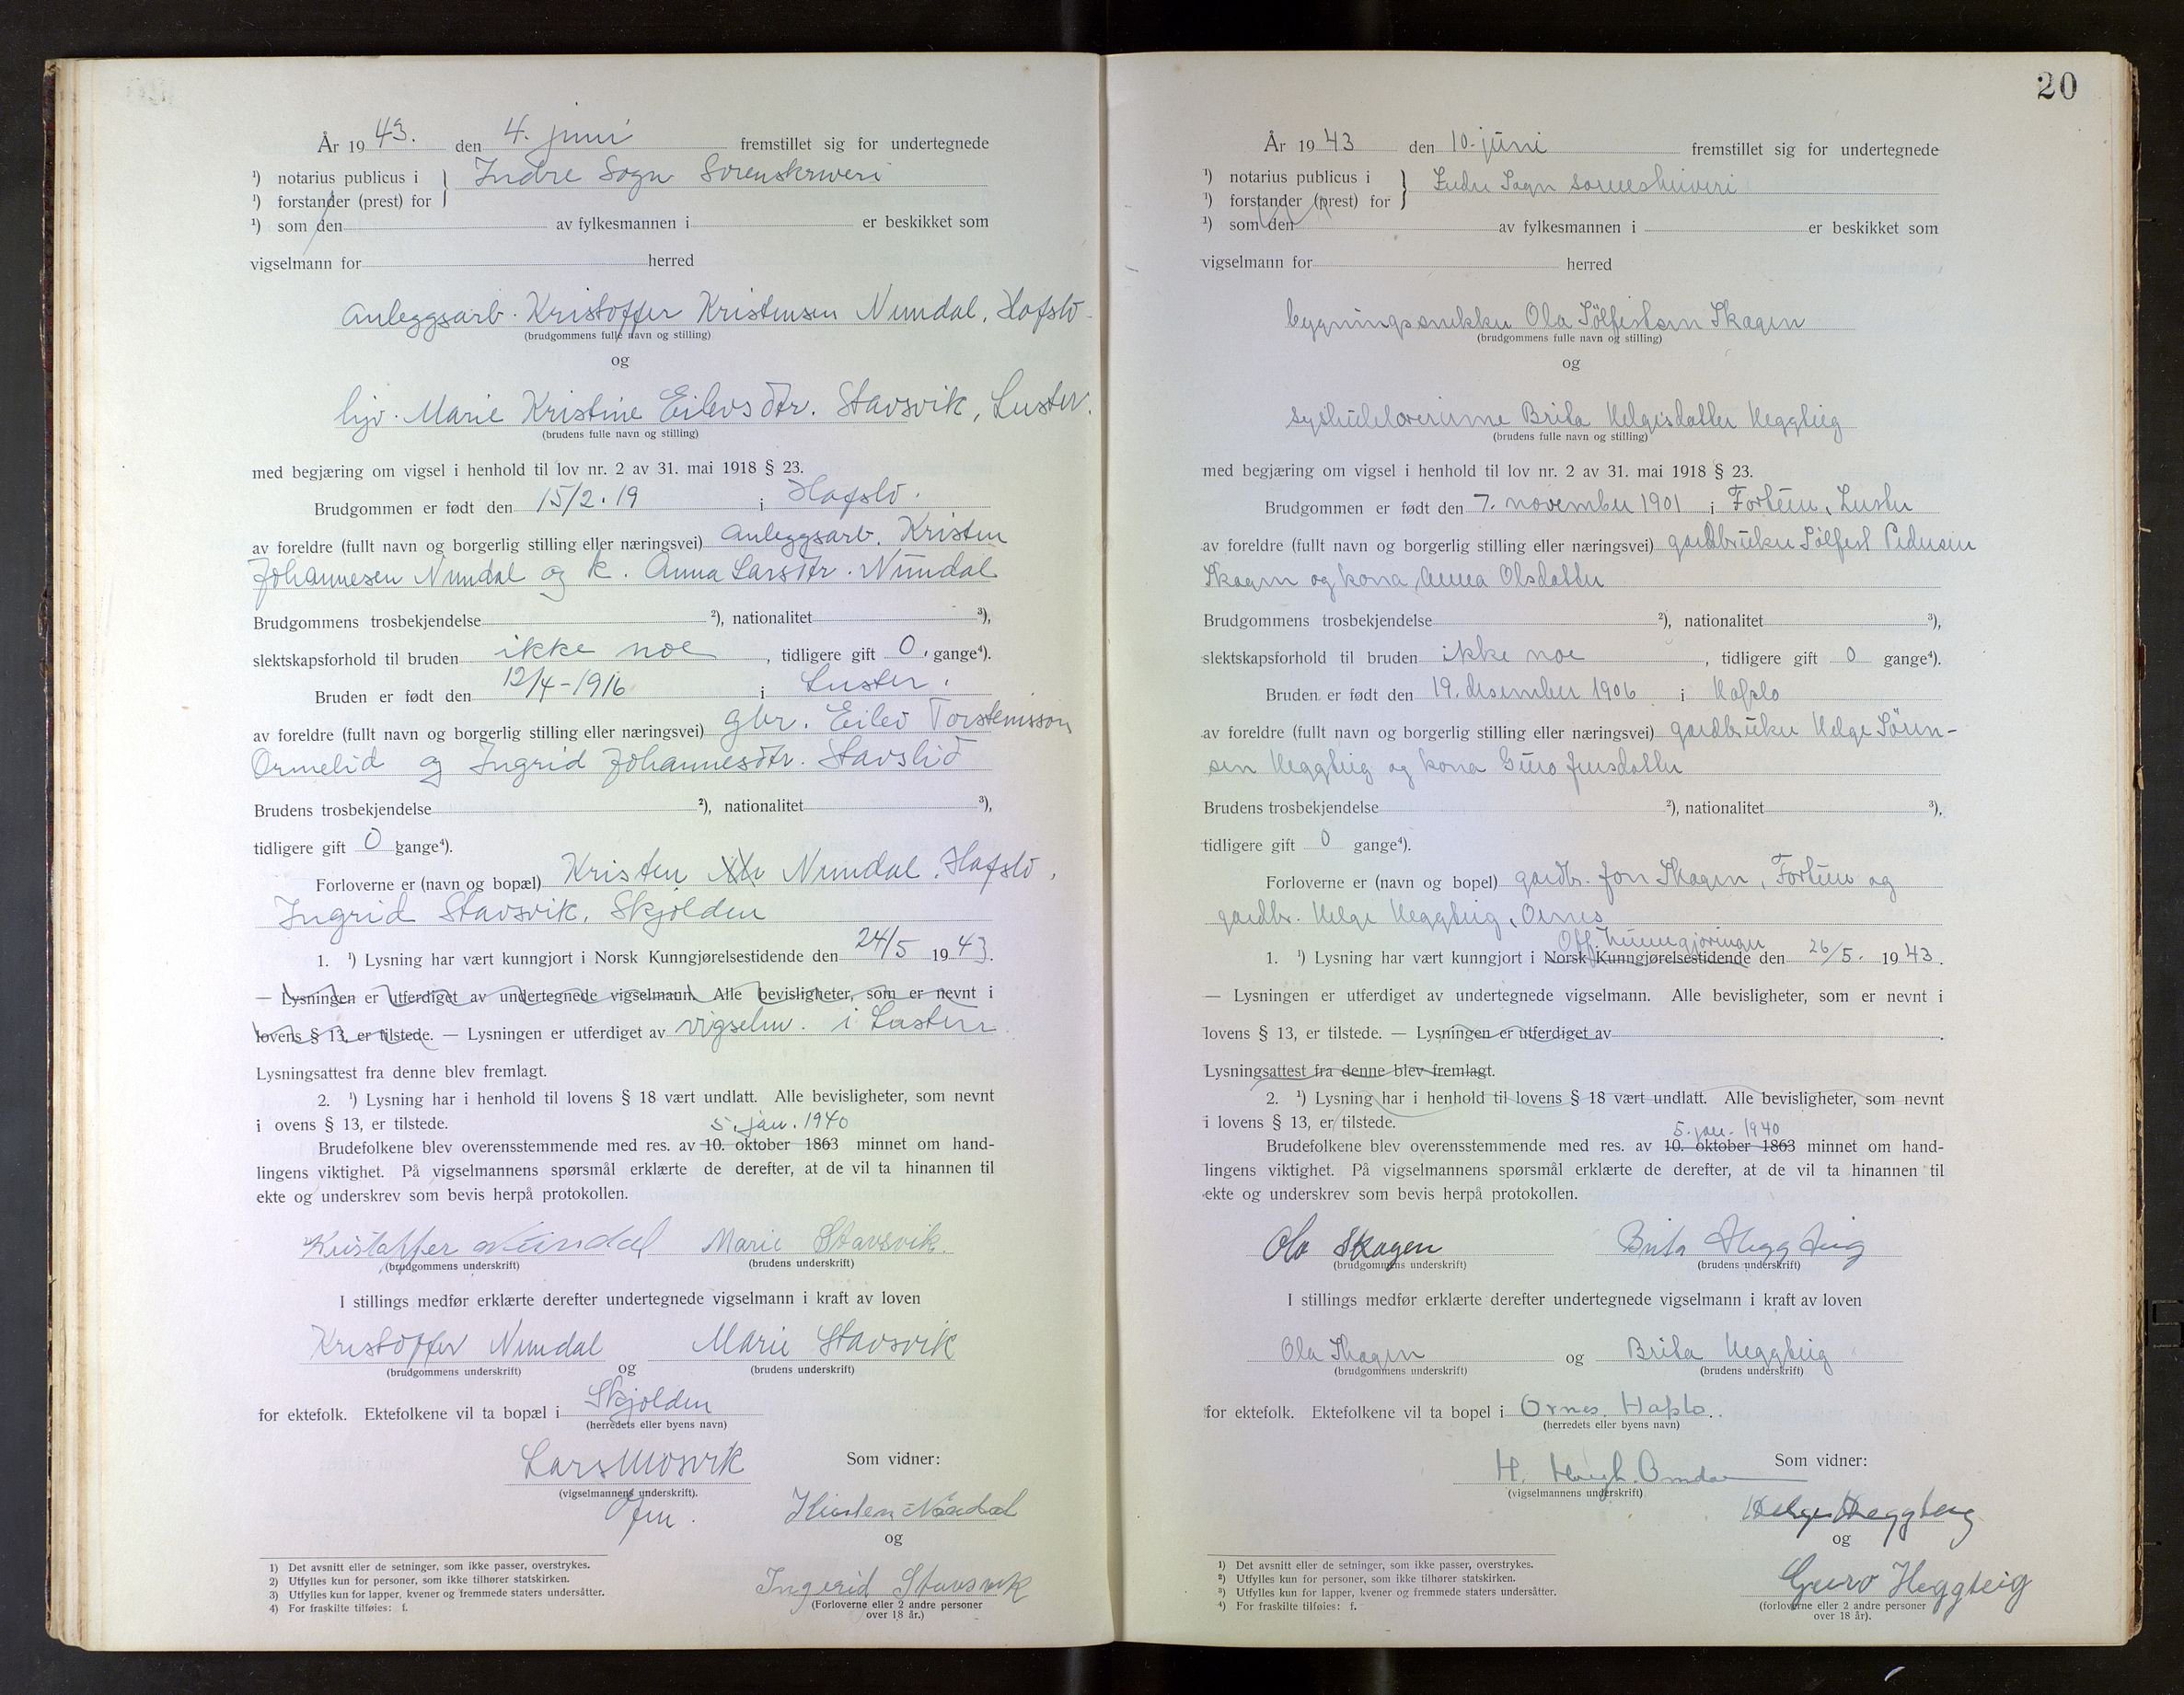 År 1943. den 4. juni fremstillet sig for undertegnede
¹) notarius publicus i } Indre Sogn Sorenskriveri
¹) forstander (prest) for
¹) som den av fylkesmannen i er beskikket som
vigselmann for herred
Anleggsarb. Kristoffer Kristensen Nundal, Hafslo
(brudgommens fulle navn og stilling)
og
hjv. Marie Kristine Eilevsdtr. Stavsvik, Luster.
(brudens fulle navn og stilling)
med begjæring om vigsel i henhold til lov nr. 2 av 31. mai 1918 § 23.
Brudgommen er født den 15/2.19 i Hafslo.
av foreldre (fullt navn og borgerlig stilling eller næringsvei) Anleggsarb. Kristen
Johannesen Nundal og k. Anna Larsdtr. Nundal
Brudgommens trosbekjendelse ²), nationalitet ³),
slektskapsforhold til bruden ikke noe, tidligere gift 0, gange⁴).
Bruden er født den 12/4-1916 i Luster.
av foreldre (fullt navn og borgerlig stilling eller næringsvei) gbr. Eilev Torsteinsson
Ormelid og Ingrid Johannesdtr. Stavslid
Brudens trosbekjendelse ²), nationalitet ³),
tidligere gift 0 gange⁴).
Forloverne er (navn og bopæl) Kristen Nundal, Hafslo,
Ingrid Stavsvik, Skjolden
1. ¹) Lysning har vært kunngjort i Norsk Kunngjørelsestidende den 24/5 1943.
— Lysningen er utferdiget av undertegnede vigselmann. Alle bevisligheter, som er nevnt i
lovens § 13, er tilstede. — Lysningen er utferdiget av vigselm. i Luster
Lysningsattest fra denne blev fremlagt.
2. ¹) Lysning har i henhold til lovens § 18 vært undlatt. Alle bevisligheter, som nevnt
i ovens § 13, er tilstede.
5. jan. 1940
Brudefolkene blev overensstemmende med res. av 10. oktober 1863 minnet om hand-
lingens viktighet. På vigselmannens spørsmål erklærte de derefter, at de vil ta hinannen til
ekte og underskrev som bevis herpå protokollen.
Kristoffer Nundal Marie Stavsvik.
(brudgommens underskrift) (brudens underskrift)
I stillings medfør erklærte derefter undertegnede vigselmann i kraft av loven
Kristoffer Nundal og Marie Stavsvik
(brudgommens underskrift) (brudens underskrift)
for ektefolk. Ektefolkene vil ta bopæl i Skjolden
(herredets eller byens navn)
Lars Mosvik
Som vidner:
(vigselmannens underskrift).
Kristen Nundal
og
Ingerid Stavsvik
(Forloverne eller 2 andre personer
over 18 år.)
1) Det avsnitt eller de setninger, som ikke passer, overstrykes.
2) Utfylles kun for personer, som ikke tilhører statskirken.
3) Utfylles kun for lapper, kvener og fremmede staters undersåtter.
4) For fraskilte tilføies: f.
20
År 1943 den 10. juni fremstillet sig for undertegnede
¹) notarius publicus i } Indre Sogn sorenskriveri
¹) forstander (prest) for
¹) som den av fylkesmannen i er beskikket som
vigselmann for herred
bygningssnekker Ola Sølfestsen Skagen
(brudgommens fulle navn og stilling)
og
syskulelærerinne Brita Helgesdatter Heggteig
(brudens fulle navn og stilling)
med begjæring om vigsel i henhold til lov nr. 2 av 31. mai 1918 § 23.
Brudgommen er født den 7. november 1901 i Fortun, Luster
av foreldre (fullt navn og borgerlig stilling eller næringsvei) gardbruker Sølfest Pedersen
Skagen og kona Anna Olsdatter
Brudgommens trosbekjendelse ²), nationalitet ³),
slektskapsforhold til bruden ikke noe, tidligere gift 0 gange⁴).
Bruden er født den 19. desember 1906 i Hafslo
av foreldre (fullt navn og borgerlig stilling eller næringsvei) gardbruker Helge Søren-
sen Heggteig og kona Guro Jensdatter
Brudens trosbekjendelse ²), nationalitet ³),
tidligere gift 0 gange⁴).
Forloverne er (navn og bopel) gardbr. Jon Skagen, Fortun og
gardbr. Helge Heggteig, Ornes
Off. kunngjøringer
1. ¹) Lysning har vært kunngjort i Norsk Kunngjørelsestidende den 26/5. 1943.
— Lysningen er utferdiget av undertegnede vigselmann. Alle bevisligheter, som er nevnt i
lovens § 13, er tilstede. — Lysningen er utferdiget av
Lysningsattest fra denne blev fremlagt.
2. ¹) Lysning har i henhold til lovens § 18 vært undlatt. Alle bevisligheter, som nevnt
i lovens § 13, er tilstede.
5. jan. 1940
Brudefolkene blev overensstemmende med res. av 10. oktober 1863 minnet om hand-
lingens viktighet. På vigselmannens spørsmål erklærte de derefter, at de vil ta hinannen til
ekte og underskrev som bevis herpå protokollen.
Ola Skagen Brita Heggteig
(brudgommens underskrift) (brudens underskrift)
I stillings medfør erklærte derefter undertegnede vigselmann i kraft av loven
Ola Skagen og Brita Heggteig
(brudgommens underskrift) (brudens underskrift)
for ektefolk. Ektefolkene vil ta bopel i Ornes, Hafslo.
(herredets eller byens navn)
Som vidner:
H.
(vigselmannens underskrift)
Helge Heggteig
og
Guro Heggteig
(forloverne eller 2 andre personer
over 18 år).
¹) Det avsnitt eller de setninger, som ikke passer, overstrykes.
²) Utfylles kun for personer, som ikke tilhører statskirken.
³) Utfylles kun for lapper, kvener og fremmede staters undersåtter.
⁴) For fraskilte tilføies: f.